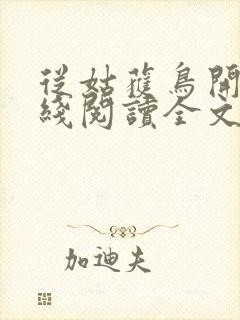 從姑蘓鳥開
綫閱讀全文
加迪夫